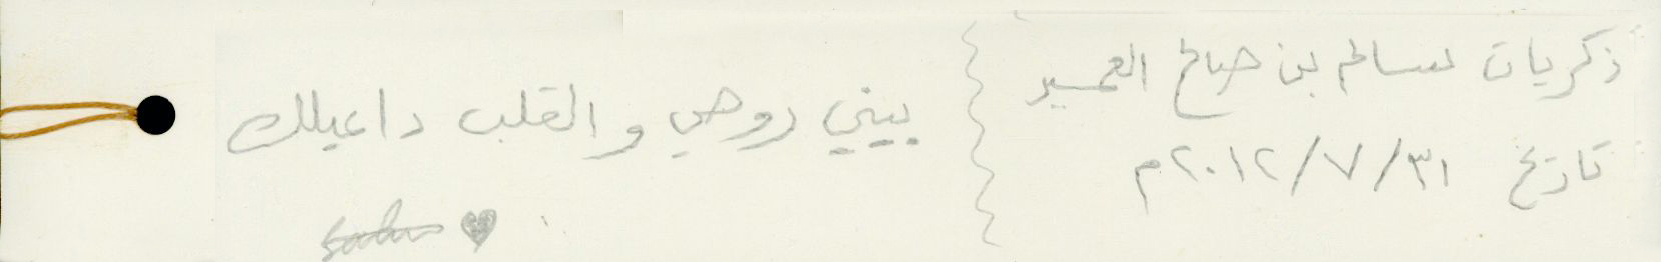 ذكريات لسالم بن صالح العمير
تاريخ ٣١/٧/٢٠١٢م
بيني روحي والقلب داعيلك